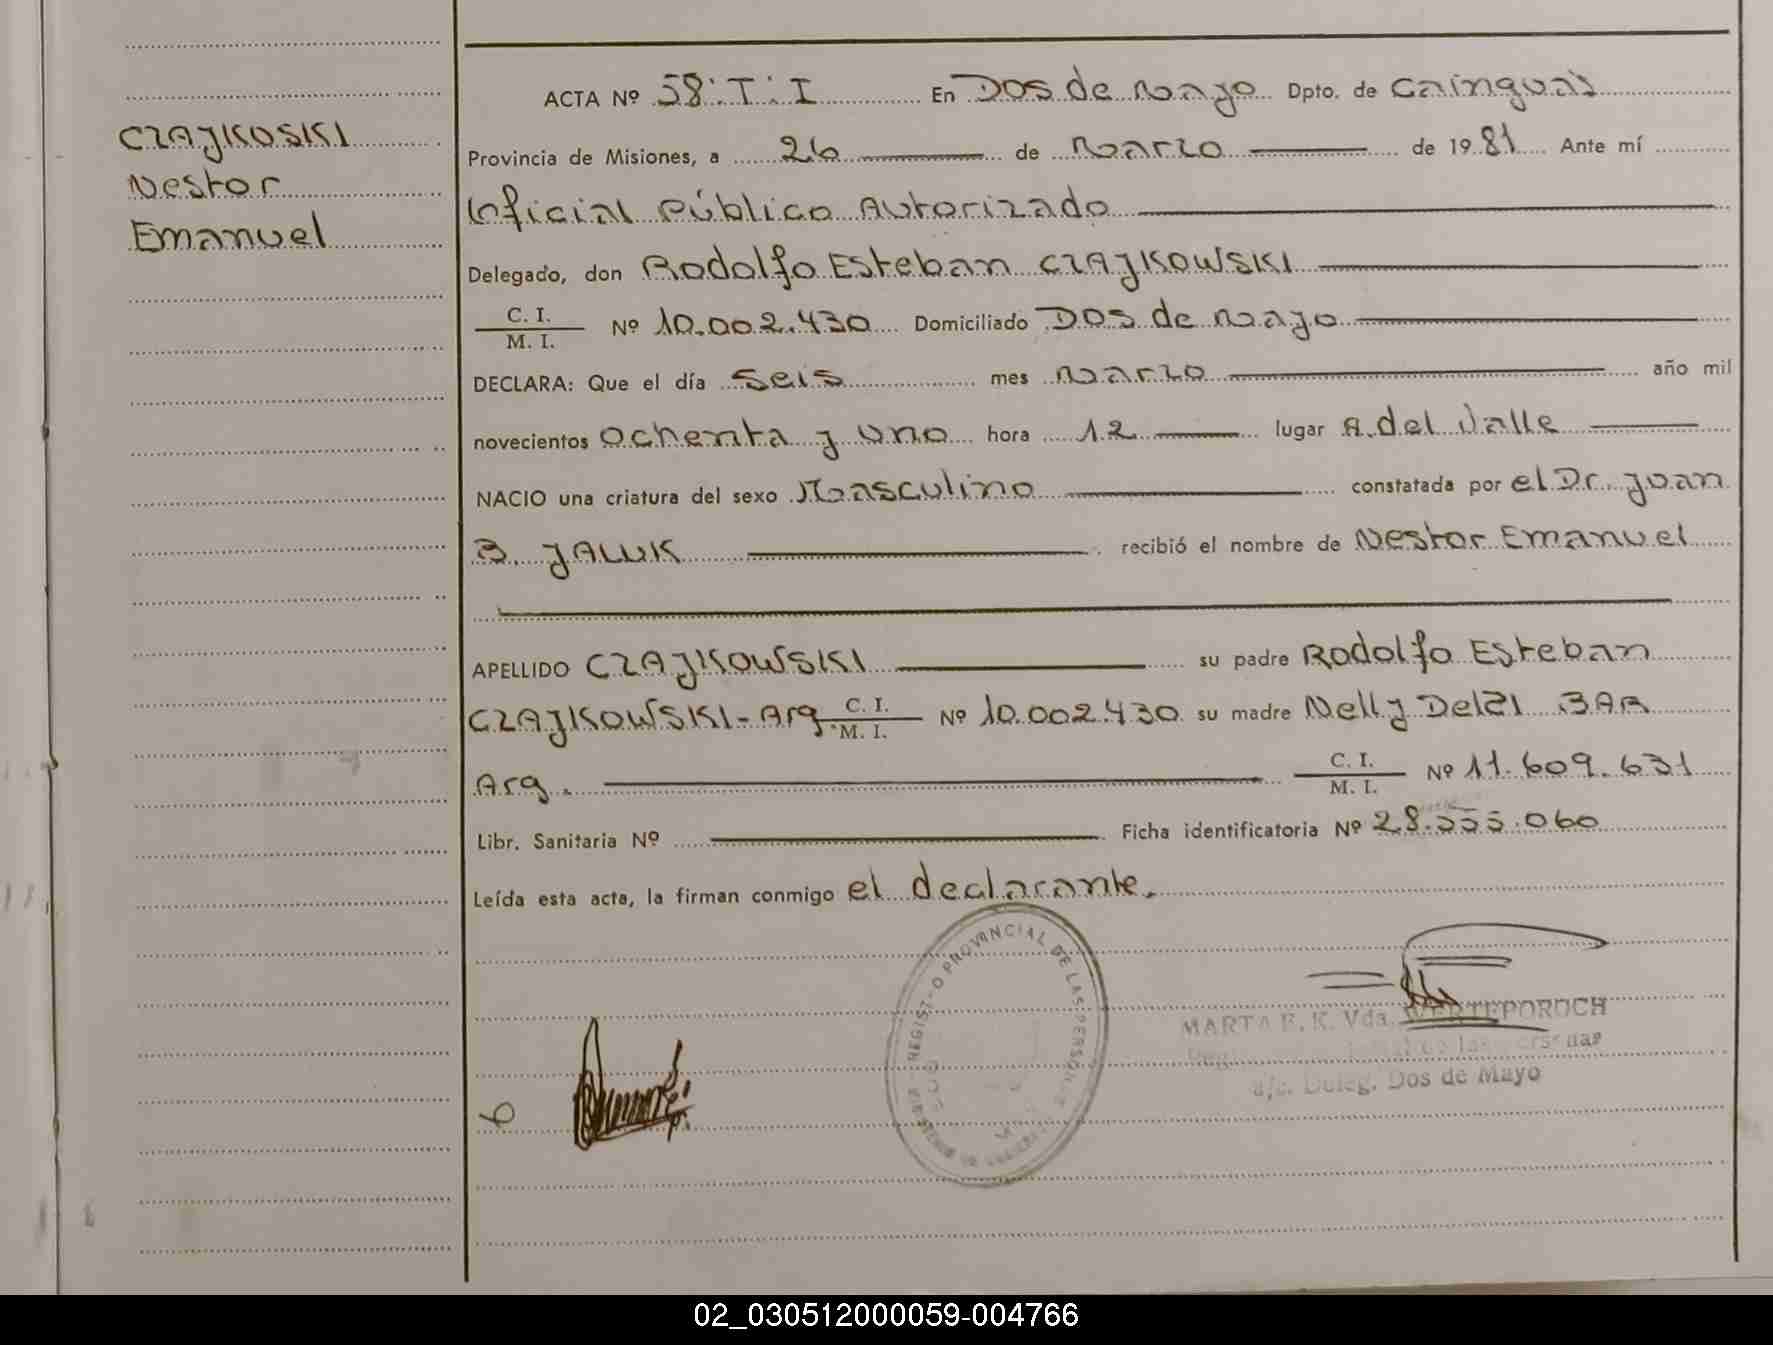 ACTA Nº 58·T·I En Dos de Mayo Dpto. de Cainguás
CZAJKOSKI
Provincia de Misiones, a 26 de Marzo de 1981 Ante mí
Nestor
Oficial Público Autorizado
Emanuel
Delegado, don Rodolfo Esteban CZAJKOWSKI
C. I.
M. I. Nº 10.002.430 Domiciliado Dos de Mayo
DECLARA: Que el día seis mes Marzo año mil
novecientos Ochenta y Uno hora 12 lugar A. del Valle
NACIO una criatura del sexo Masculino constatada por el Dr. Juan
B. JALUK recibió el nombre de Nestor Emanuel
APELLIDO CZAJKOWSKI su padre Rodolfo Esteban
CZAJKOWSKI - Arg C. I. M. I. Nº 10.002.430 su madre Nelly Delzi BAR
Arg. C. I. M. I. Nº 11.609.631
Libr. Sanitaria Nº Ficha identificatoria Nº 28.555.060
Leída esta acta, la firman conmigo el declarante.
PROVINCIAL DE LAS PERSONAS
MARTA E. K. Vda. WERTEPOROCH
a/c. Deleg. Dos de Mayo
02_030512000059-004766